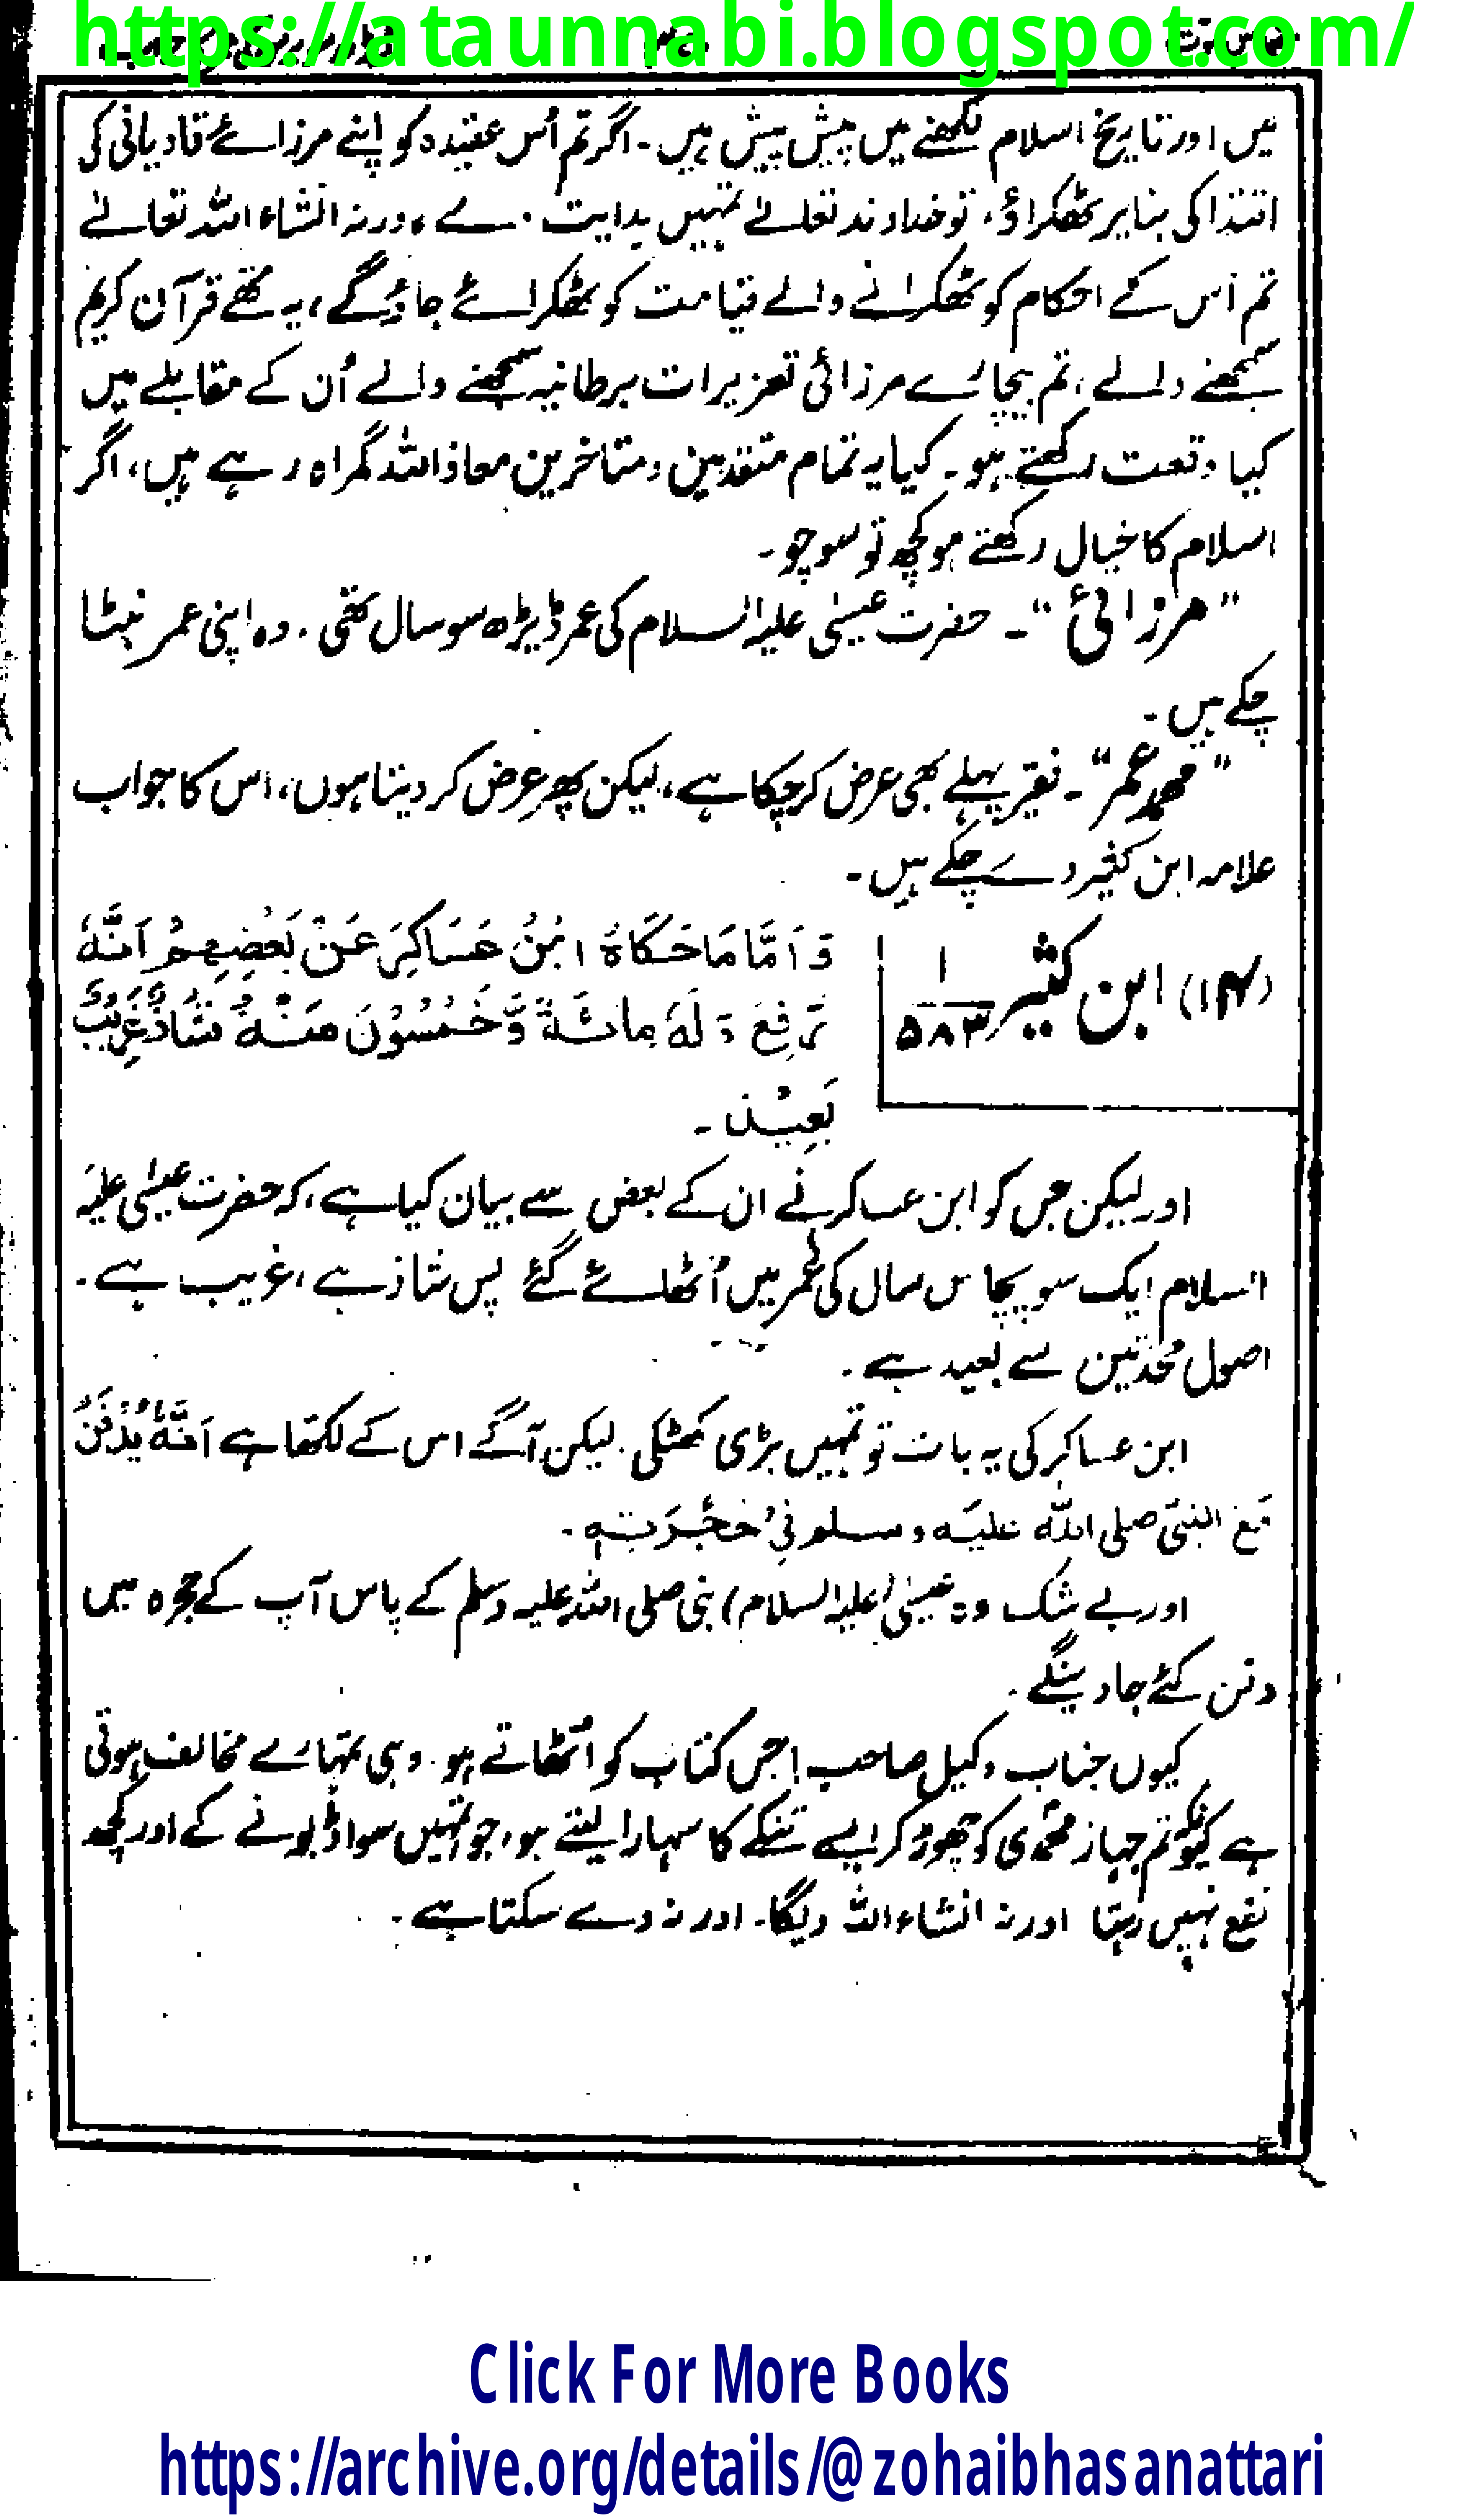 https://ataunnabi.blogspot.com/
میں اور تاریخ اسلام لکھنے میں پیش پیش ہیں۔ اگر تم اُس عقیدہ کو اپنے مرزائے قادیانی کی
اقتدا کی بنا پر ٹھکراؤ، تو خداوند تعالےٰ تمہیں ہدایت دے، ورنہ انشاء اللہ تعالےٰ
تم اُس کے احکام کو ٹھکرانے والے قیامت کو ٹھکرائے جاؤ گے، یہ تھے قرآن کریم
سمجھنے والے، تم بیچارے مرزائی تعزیرات برطانیہ سمجھنے والے اُن کے مقابلے میں
کیا وقعت رکھتے ہو۔ کیا یہ تمام متقدمین و متاخرین معاذ اللہ گمراہ رہے ہیں، اگر
اسلام کا خیال رکھتے ہو کچھ تو سوچو۔
”مرزائی“۔ حضرت عیسٰی علیہ السلام کی عمر ڈیڑھ سو سال تھی۔ وہ اپنی عمر نبٹا
چکے ہیں۔
”محمد عمر“۔ فقیر پہلے بھی عرض کر چکا ہے، لیکن پھر عرض کر دیتا ہوں، اس کا جواب
علامہ ابن کثیر دے چکے ہیں۔
(۱۴) ابن کثیر ۱/۵۸۳
وَ اَمَّا مَا حَكَاهُ ابْنُ عَسَاكِرَ عَنْ بَعْضِهِمْ اَنَّهٗ
رُفِعَ وَ لَهٗ مِائَةٌ وَّ خَمْسُوْنَ سَنَةً شَاذٌّ غَرِيْبٌ
بَعِيْدٌ۔
اور لیکن جس کو ابن عساکر نے ان کے بعض سے بیان کیا ہے، کہ حضرت عیسٰی علیہ
السلام ایک سو پچاس سال کی عُمر میں اُٹھائے گئے پس شاذ ہے، غریب ہے۔
اصول محدثین سے بعید ہے۔
ابن عساکر کی یہ بات تو تمہیں بڑی کھٹکی۔ لیکن آگے اس کے لکھا ہے اَنَّهٗ يُدْفَنُ
مَعَ النبیّ صلی اللہ علیہ وسلم فِیْ حُجْرَتِهٖ۔
اور بے شک وہ عیسٰی (علیہ السلام) نبی صلی اللہ علیہ وسلم کے پاس آپ کے حجرہ میں
دفن کئے جاوینگے۔
کیوں جناب وکیل صاحب! جس کتاب کو اُٹھاتے ہو۔ وہی تمہارے مخالف ہوتی
ہے کیونکہ تم جہاز محمدی کو چھوڑ کر ایسے تنکے کا سہارا لیتے ہو، جو تمہیں سوا ڈبونے کے اور کچھ
نفع نہیں دیتا اور نہ انشاء اللہ دیگا۔ اور نہ دے سکتا ہے۔
Click For More Books
https://archive.org/details/@zohaibhasanattari